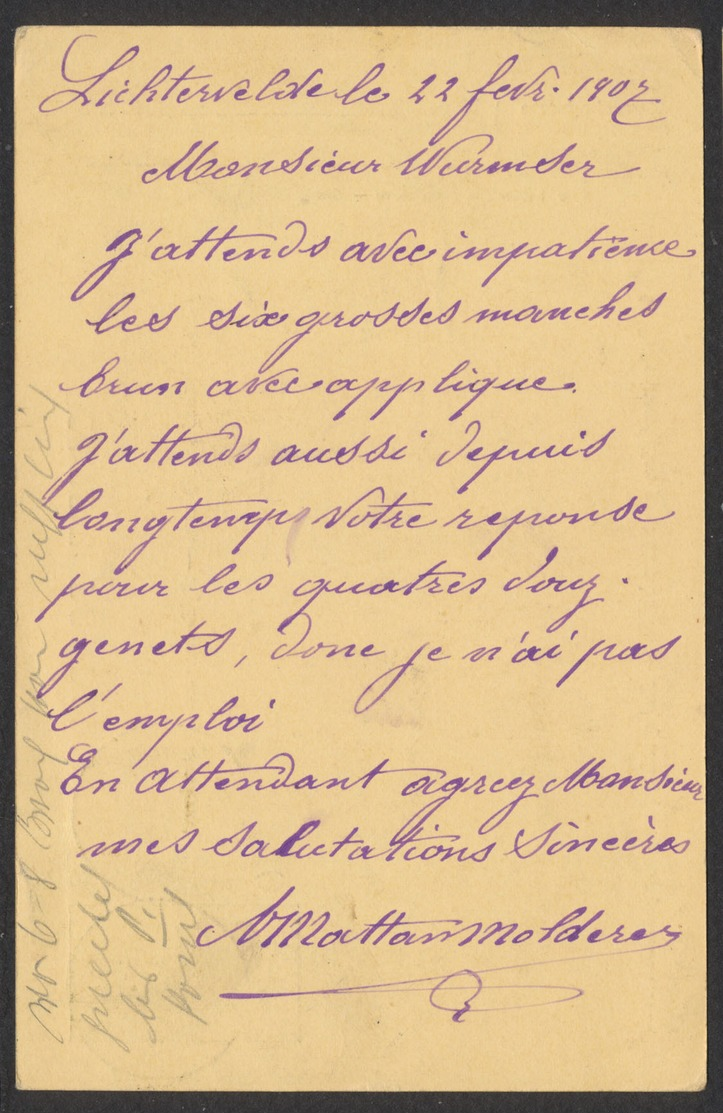 Lichtervelde le 22 fevr. 1907
Monsieur Wurmser
J'attends avec impatience
les six grosses manches
brun avec applique.
J'attends aussi depuis
longtemps votre reponse
pour les quatres douz.
genets, donc je n'ai pas
l'emploi
En attendant agreez Monsieur
mes salutations sincères